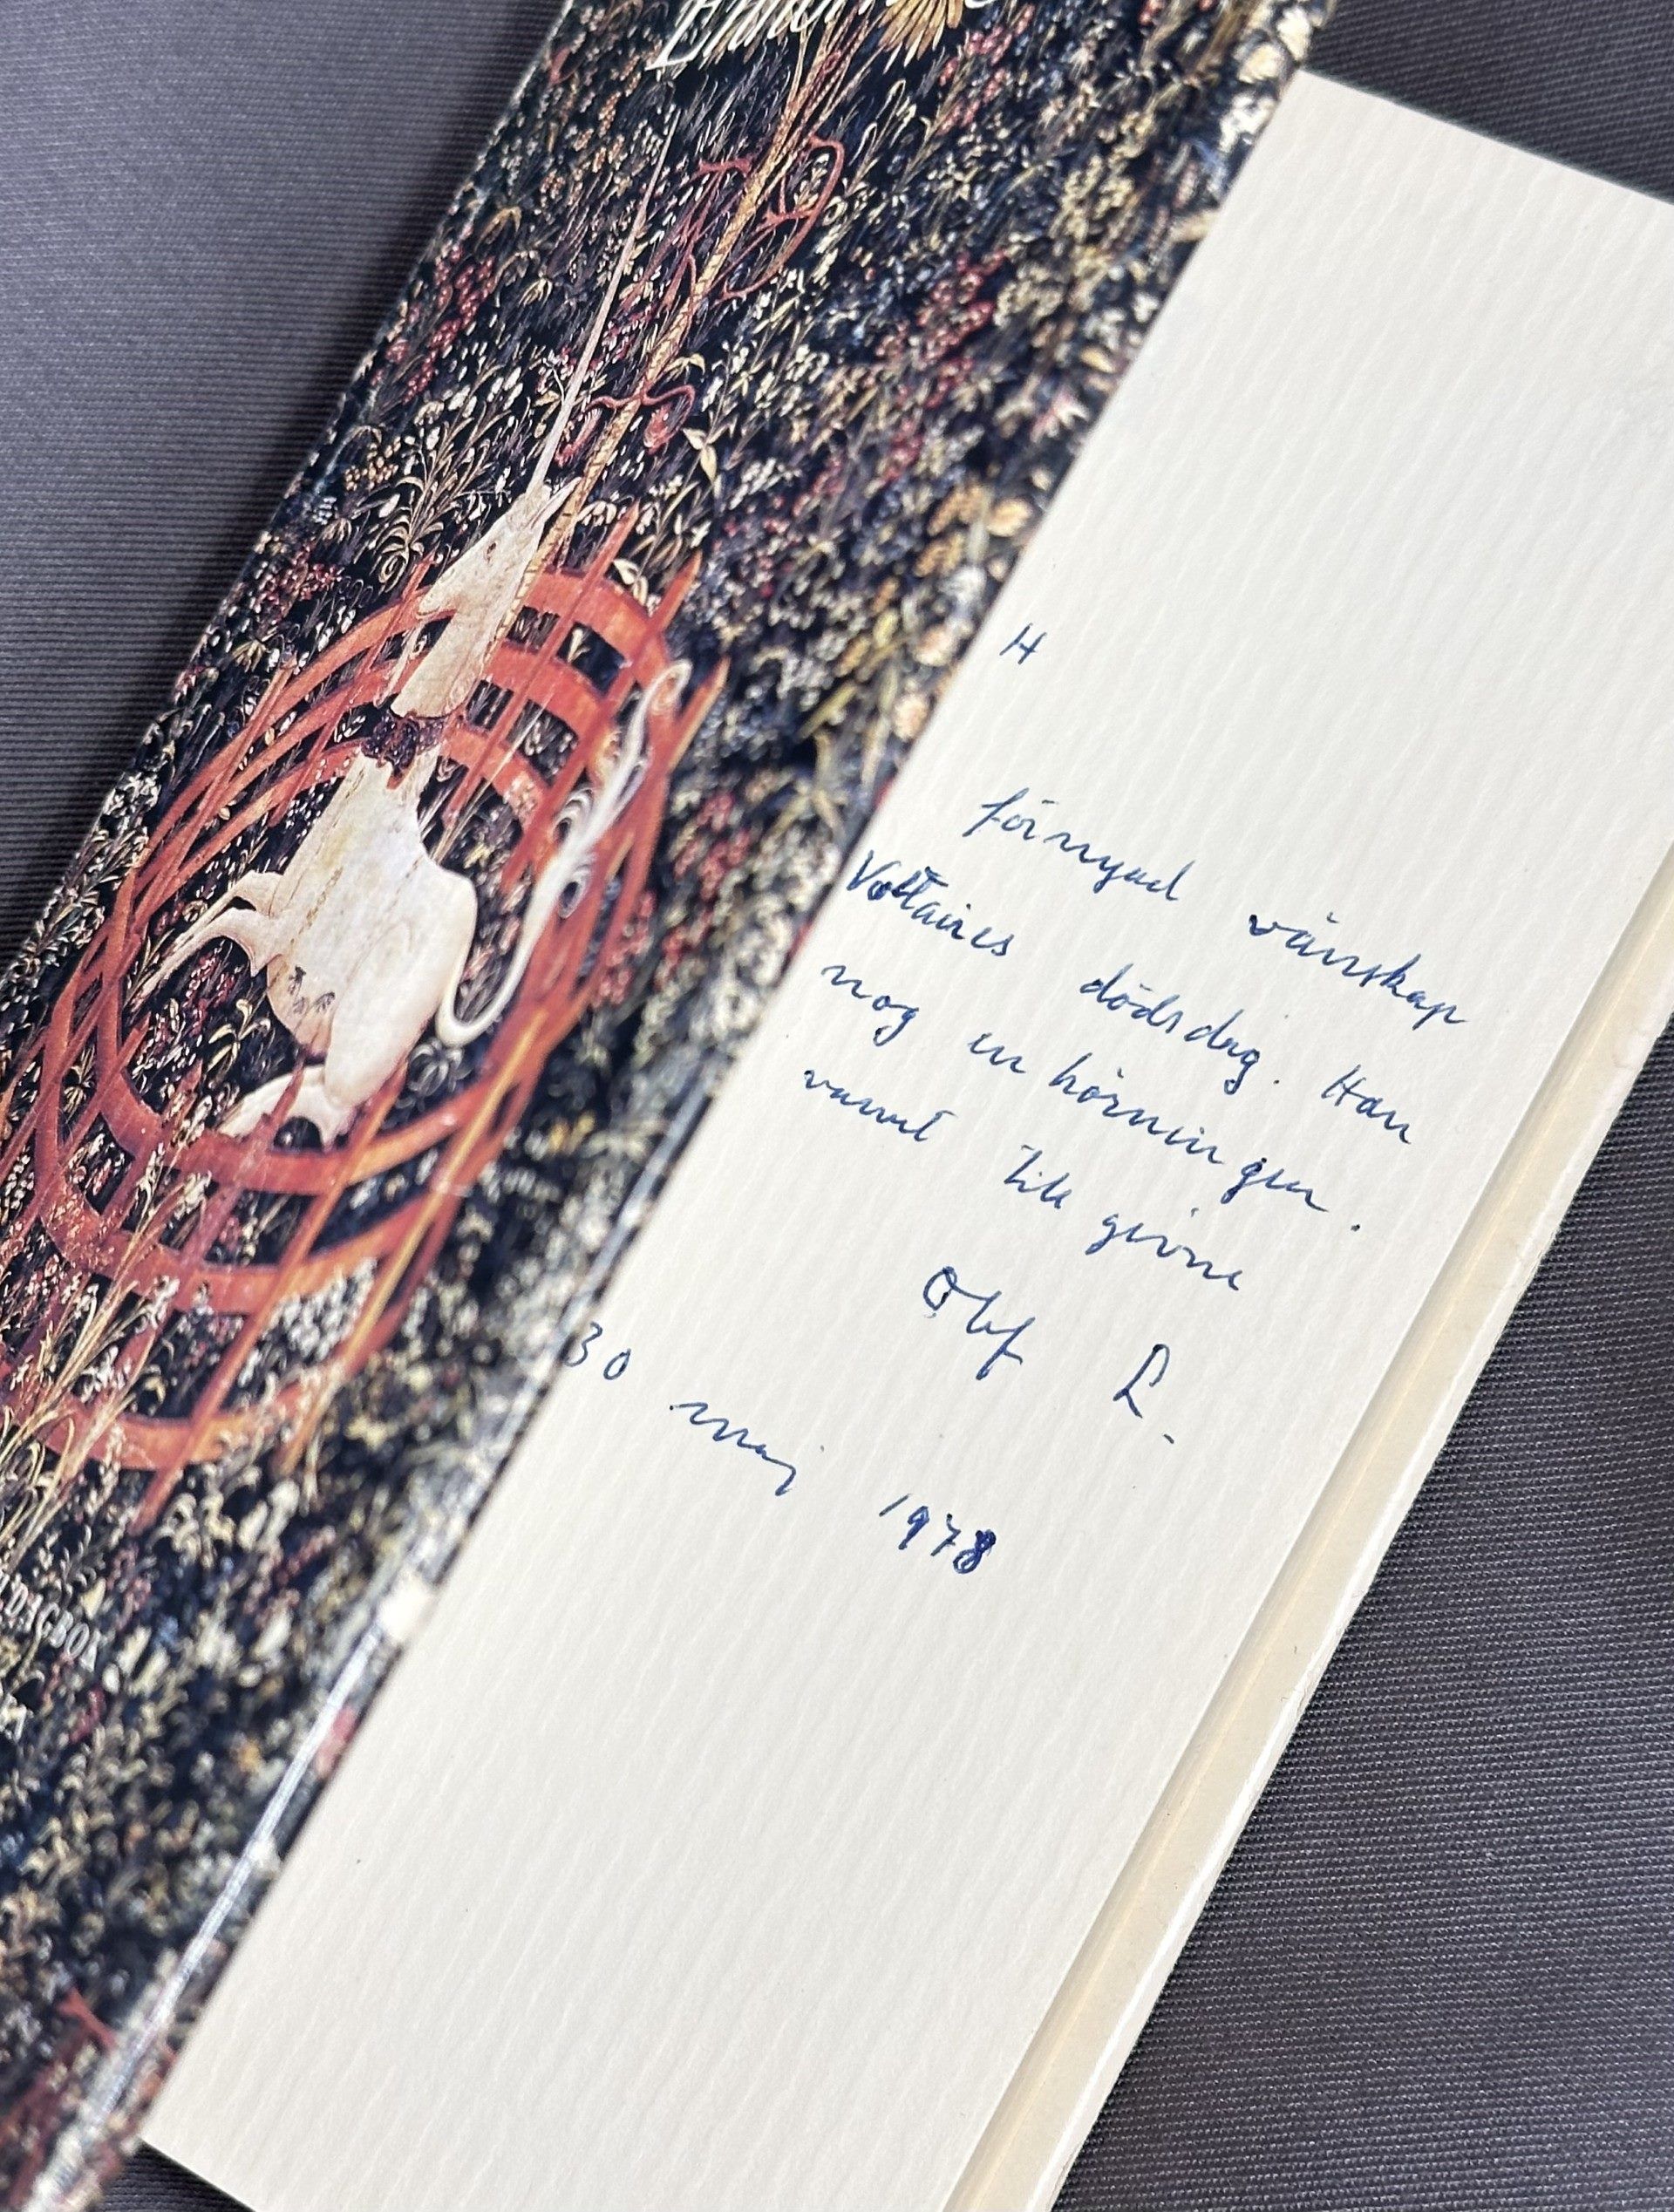 H
förnyad vänskap
Voltaires dödsdag. Han
nog enhörningen.
varmt tillgivne
Olof L.
30 maj 1978
DAGBOK